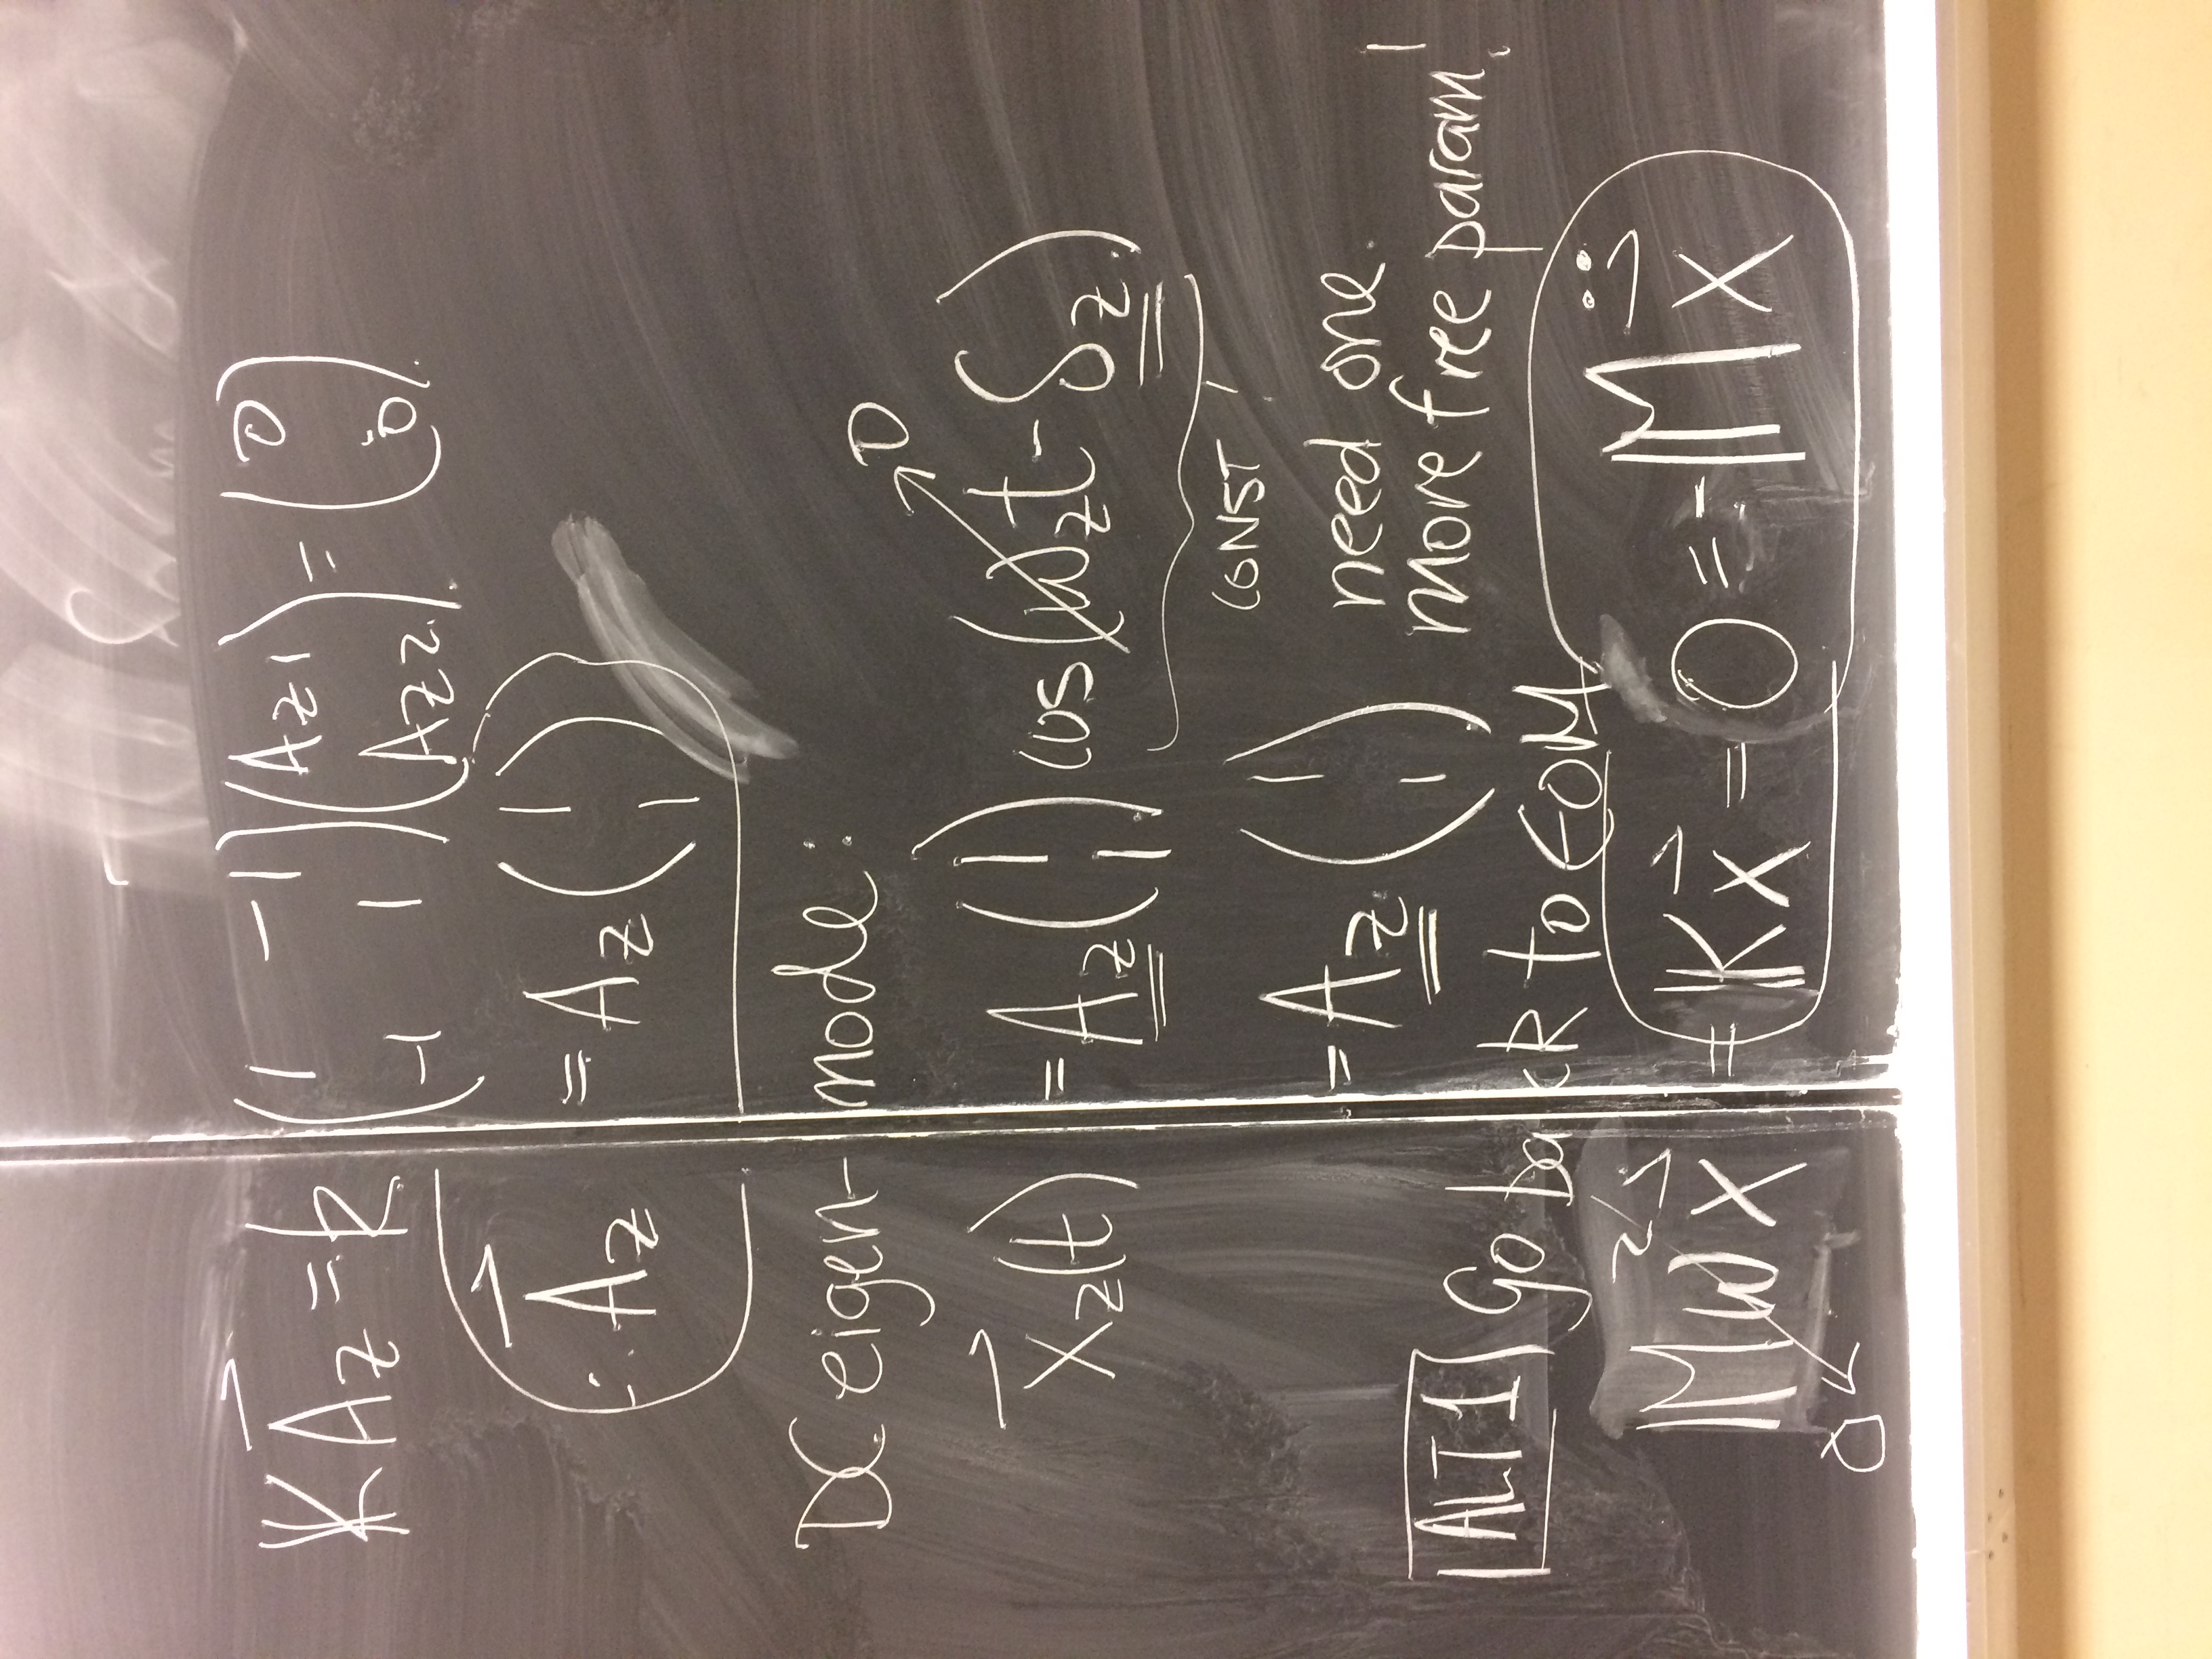 𝕂A⃗z = k (1 -1 -1 1)(Az1 Az2) = (0 0).
∴ A⃗z = Az (1 1)
DC eigen-mode:
x⃗z(t) = Az (1 1) cos(ωzt - δz) → 0
CONST
= Az (1 1) need one
more free param!
ALT 1 Go back to EOM
𝕄ω²x⃗ = 𝕂x⃗ = 0 = -𝕄x⃗̈
0